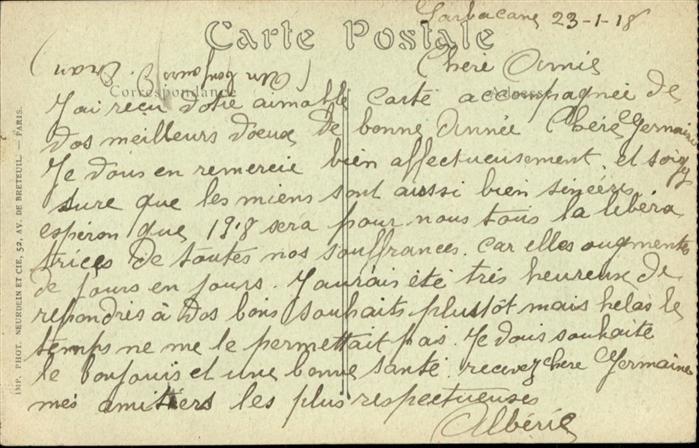 Carte Postale
Garbacane 23-1-18
(Un bonjour Bran)
Chère Amie
Correspondance
J'ai reçu votre aimable carte accompagnée de
vos meilleurs voeux de bonne Année Chère Germaine
Je vous en remercie bien affectueusement. et soigy
sure que les miens sont aussi bien sincères
espéron que 1918 sera pour nous tous la libéra
trices de toutes nos souffrances. car elles augmente
de jours en jours. J'aurais été très heureux de
repondres à vos bons souhaits plustôt mais hélas le
temps ne me le permettait pas. Je vous souhaite
le bonjouis et une bonne santé. recevez chère Germaine
mes amitiers les plus respectueuses
Albéric
IMP. PHOT. NEURDEIN ET CIE, 52, AV. DE BRETEUIL. — PARIS.